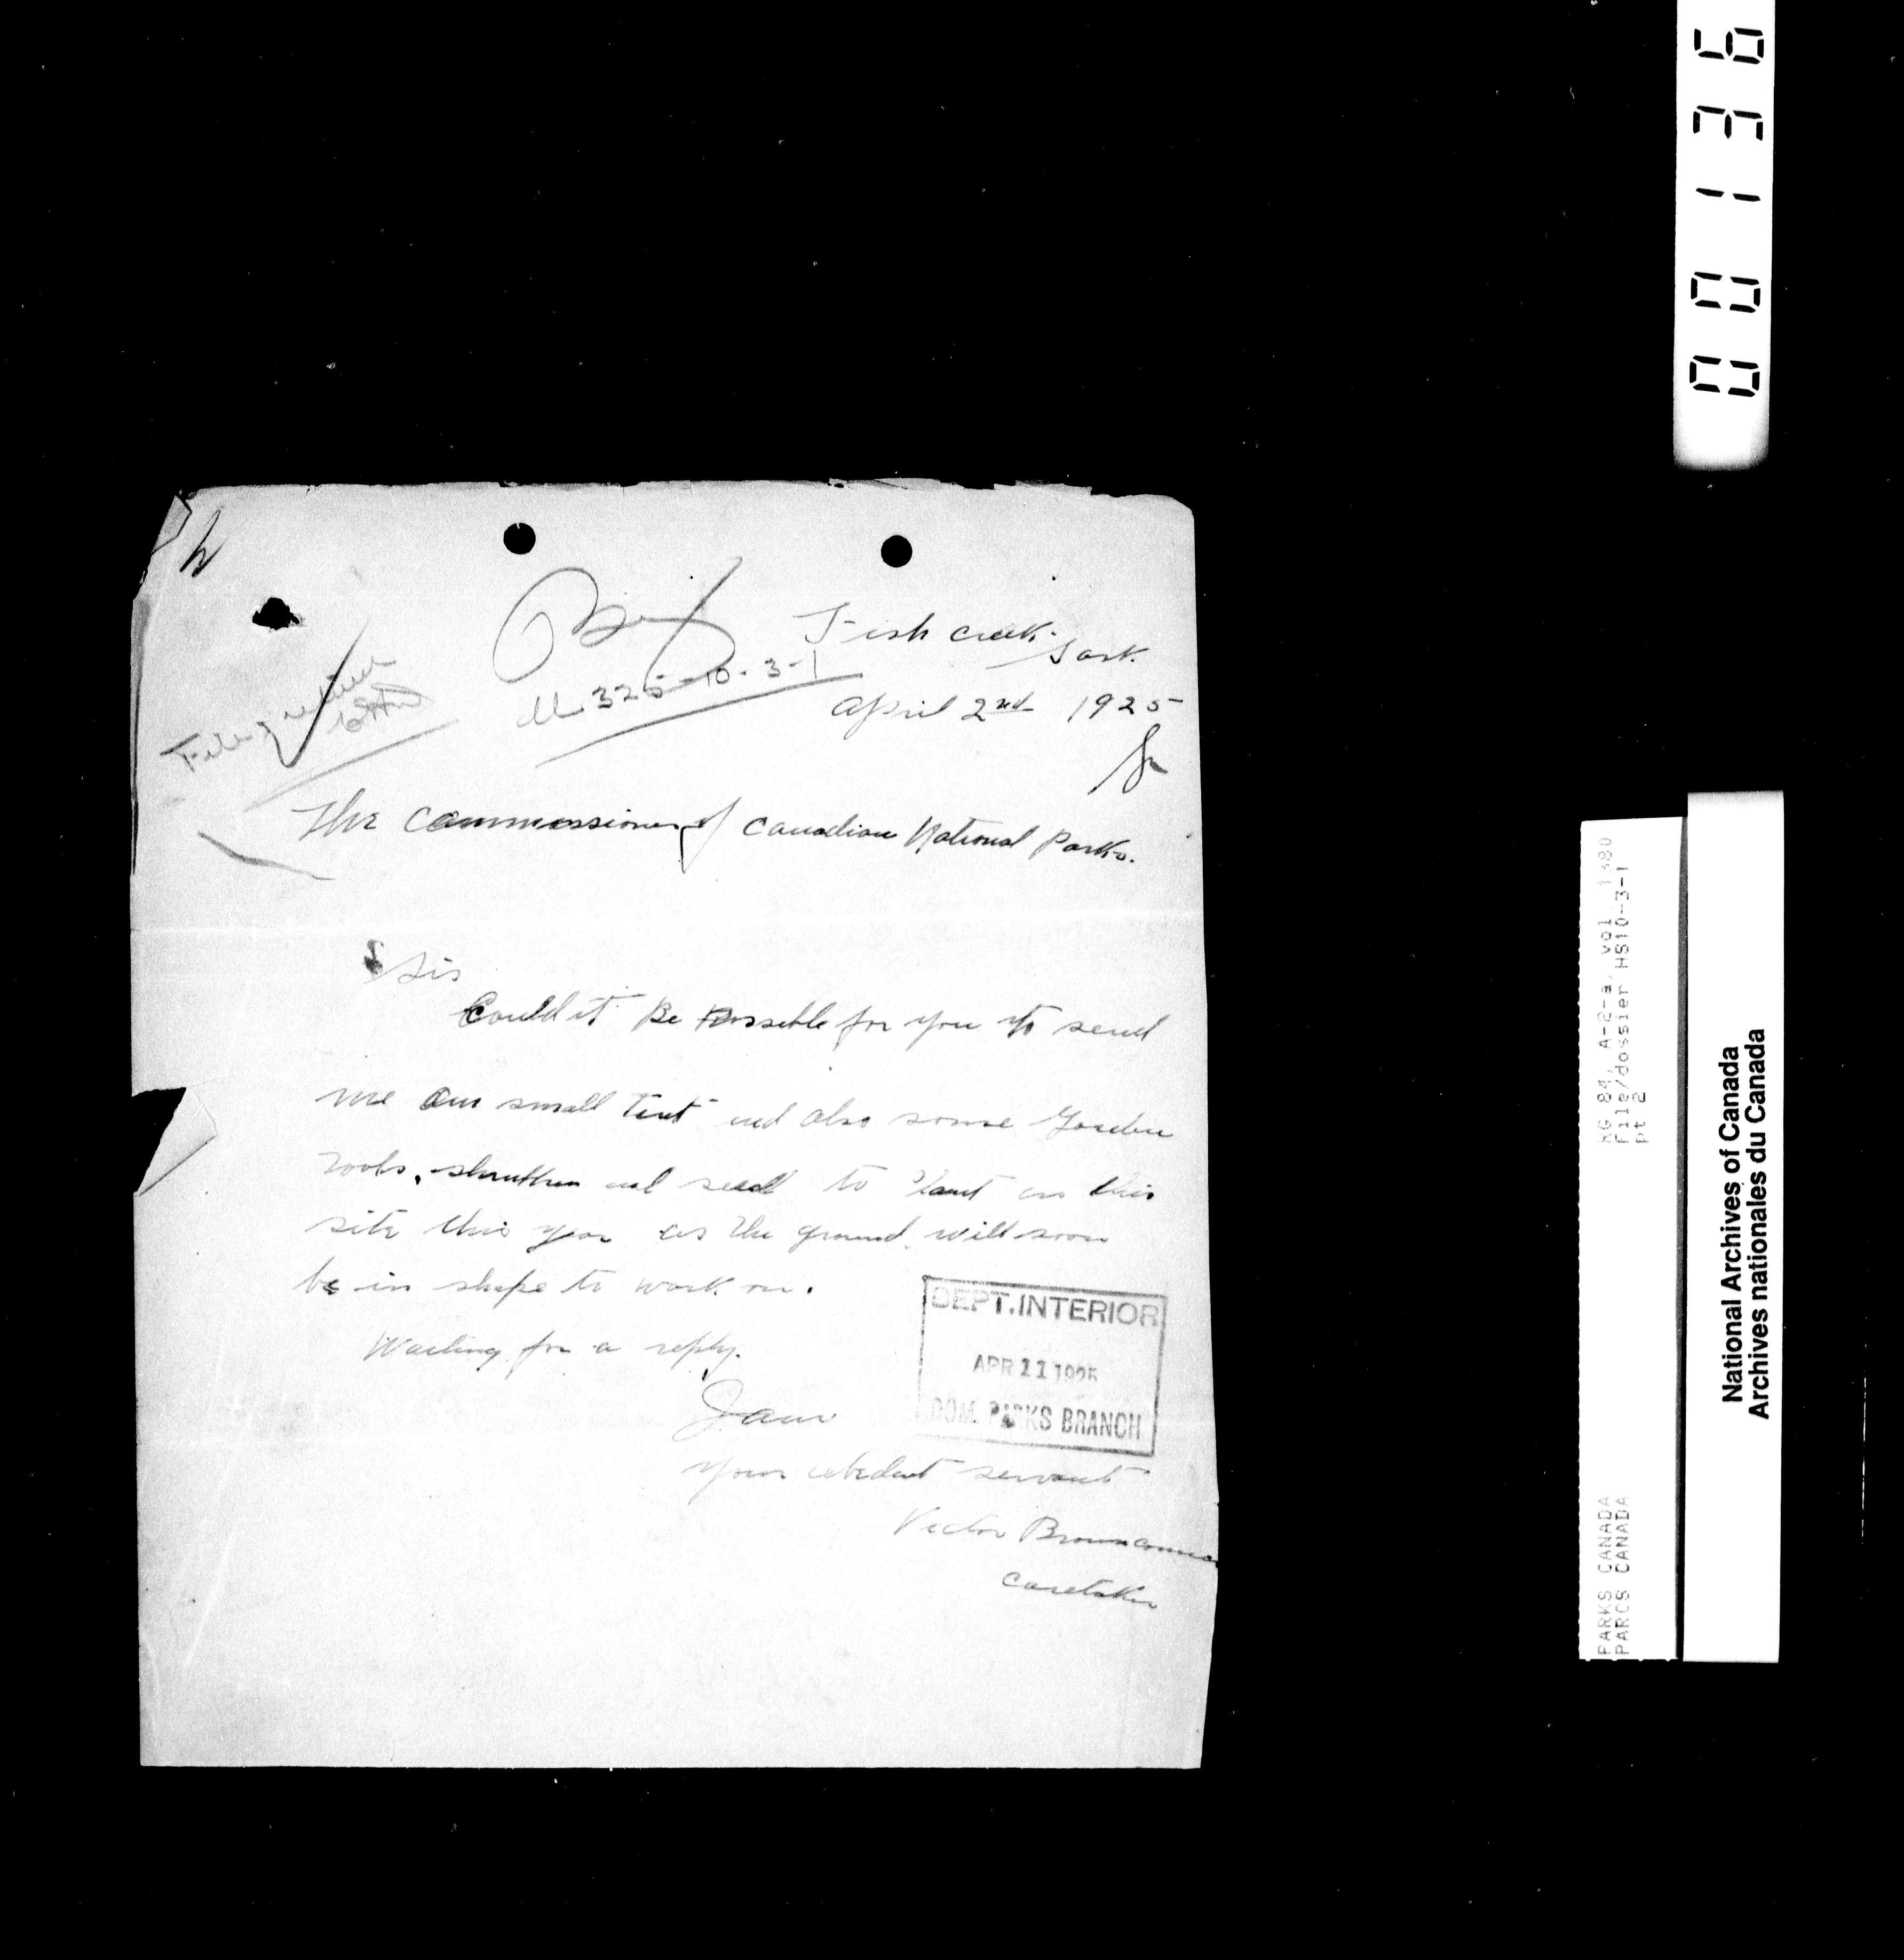 Fish creek.
Sask.
M 325-10-3-1
April 2nd 1925
The Commissioner of Canadian National Parks.
Sir
Could it Be Possible for you to send
me our small tent and also some Garden
Tools, and seed to Plant on this
site this year as the ground will soon
be in shape to work on.
Waiting for a reply.
I am
your obedent servant
Victor
caretaker
DEPT. INTERIOR
APR 11 1925
DOM. PARKS BRANCH
000136
RG 84, A-2-a, vol. 1380
File/dossier HS10-3-1
pt 2
PARKS CANADA
PARCS CANADA
National Archives of Canada
Archives nationales du Canada